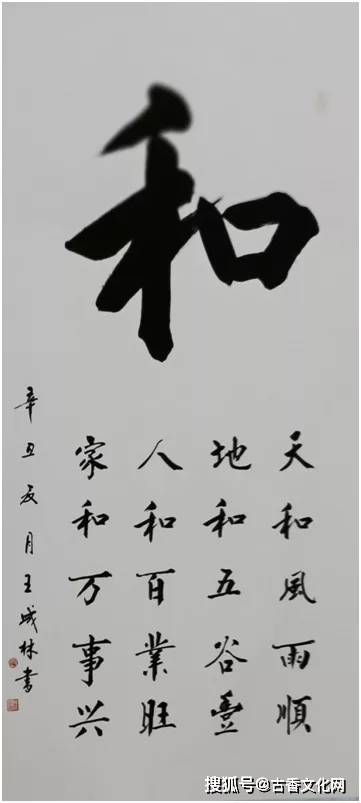 和
天和風雨順
地和五谷豐
人和百業旺
家和万事兴
辛丑夏月王城林書
搜狐号@古香文化网